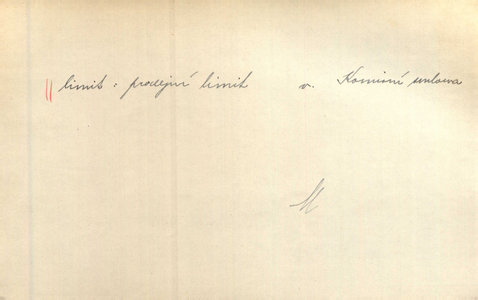 limit : prodejní limit v. Komisní smlouva